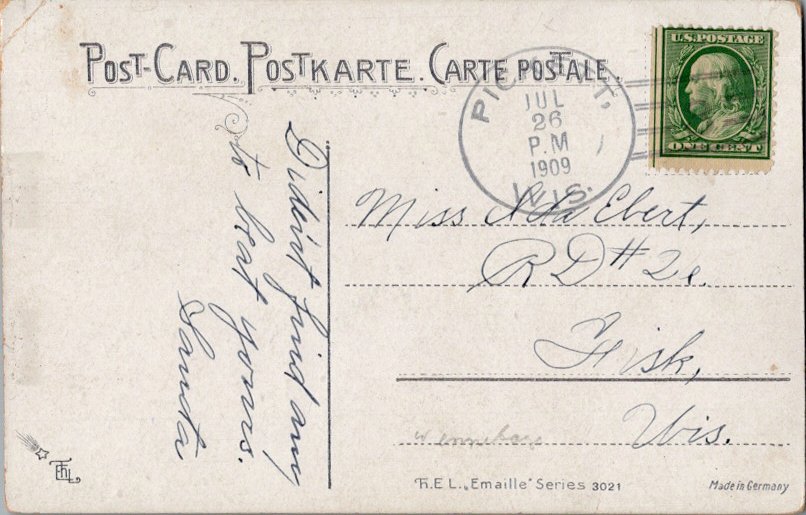 POST-CARD. POSTKARTE. CARTE POSTALE.
U.S. POSTAGE
ONE CENT
JUL
26
P.M
1909
WIS.
Did'ent find any
to beat yours.
Santa
Miss Ada Ebert,
RD #20.
Fisk,
Wis.
Th.E.L. „Emaille" Series 3021
Made in Germany